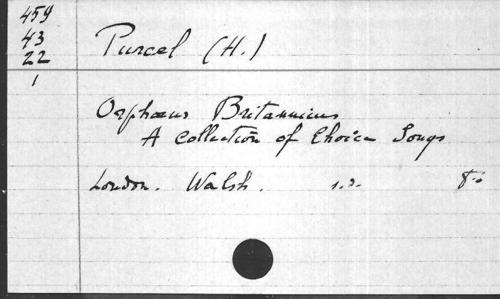 459
43
22
1
Purcel (H.)
Orphæus Britannicus
A Collection of Choice Songs
London. Walsh. s.d. 8º